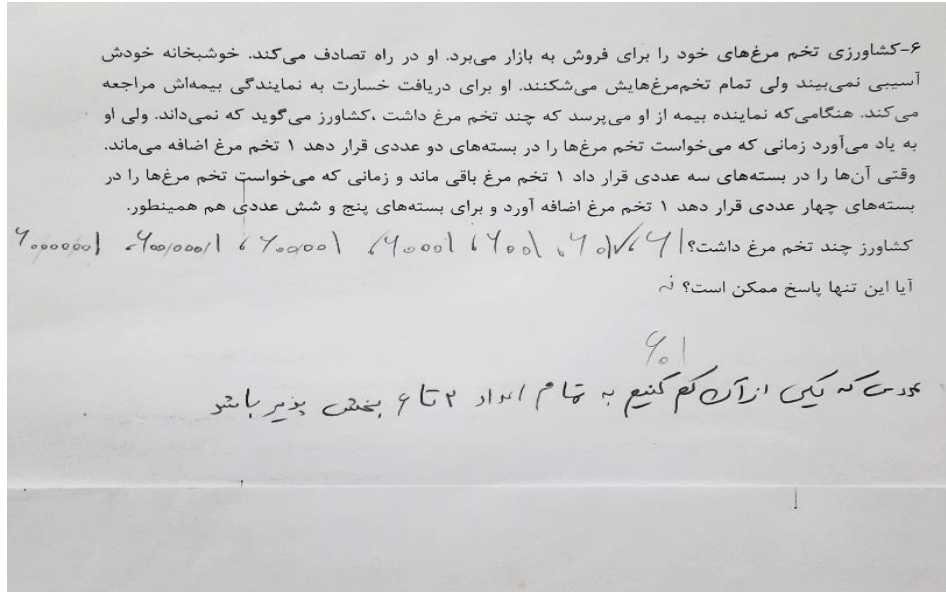 ۶-کشاورزی تخم مرغ‌های خود را برای فروش به بازار می‌برد. او در راه تصادف می‌کند. خوشبخانه خودش
آسیبی نمی‌بیند ولی تمام تخم‌مرغ‌هایش می‌شکنند. او برای دریافت خسارت به نمایندگی بیمه‌اش مراجعه
می‌کند. هنگامی‌که نماینده بیمه از او می‌پرسد که چند تخم مرغ داشت ،کشاورز می‌گوید که نمی‌داند. ولی او
به یاد می‌آورد زمانی که می‌خواست تخم مرغ‌ها را در بسته‌های دو عددی قرار دهد ۱ تخم مرغ اضافه می‌ماند.
وقتی آن‌ها را در بسته‌های سه عددی قرار داد ۱ تخم مرغ باقی ماند و زمانی که می‌خواست تخم مرغ‌ها را در
بسته‌های چهار عددی قرار دهد ۱ تخم مرغ اضافه آورد و برای بسته‌های پنج و شش عددی هم همینطور.
کشاورز چند تخم مرغ داشت؟ ۶۱، ۶۰۱، ۶۰۰۱، ۶۰۰۰۱، ۶۰۰۰۰۱، ۶۰۰۰۰۰۱، ۶۰۰۰۰۰۰۱
آیا این تنها پاسخ ممکن است؟ نه
۶۰۱
عددی که یکی از آن کم کنیم به تمام اعداد ۲ تا ۶ بخش پذیر باشد